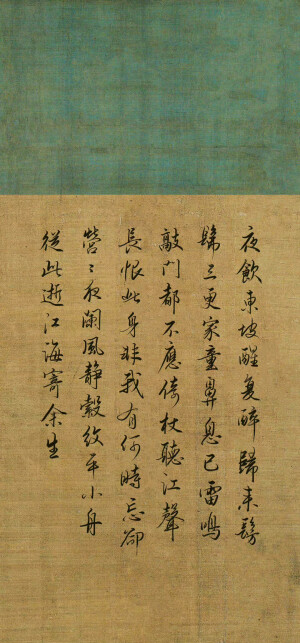 夜飲東坡醒复醉歸来髣
髴三更家童鼻息已雷鳴
敲门都不應倚杖聽江聲
長恨此身非我有何時忘卻
營〻夜阑風静縠紋平小舟
從此逝江海寄余生